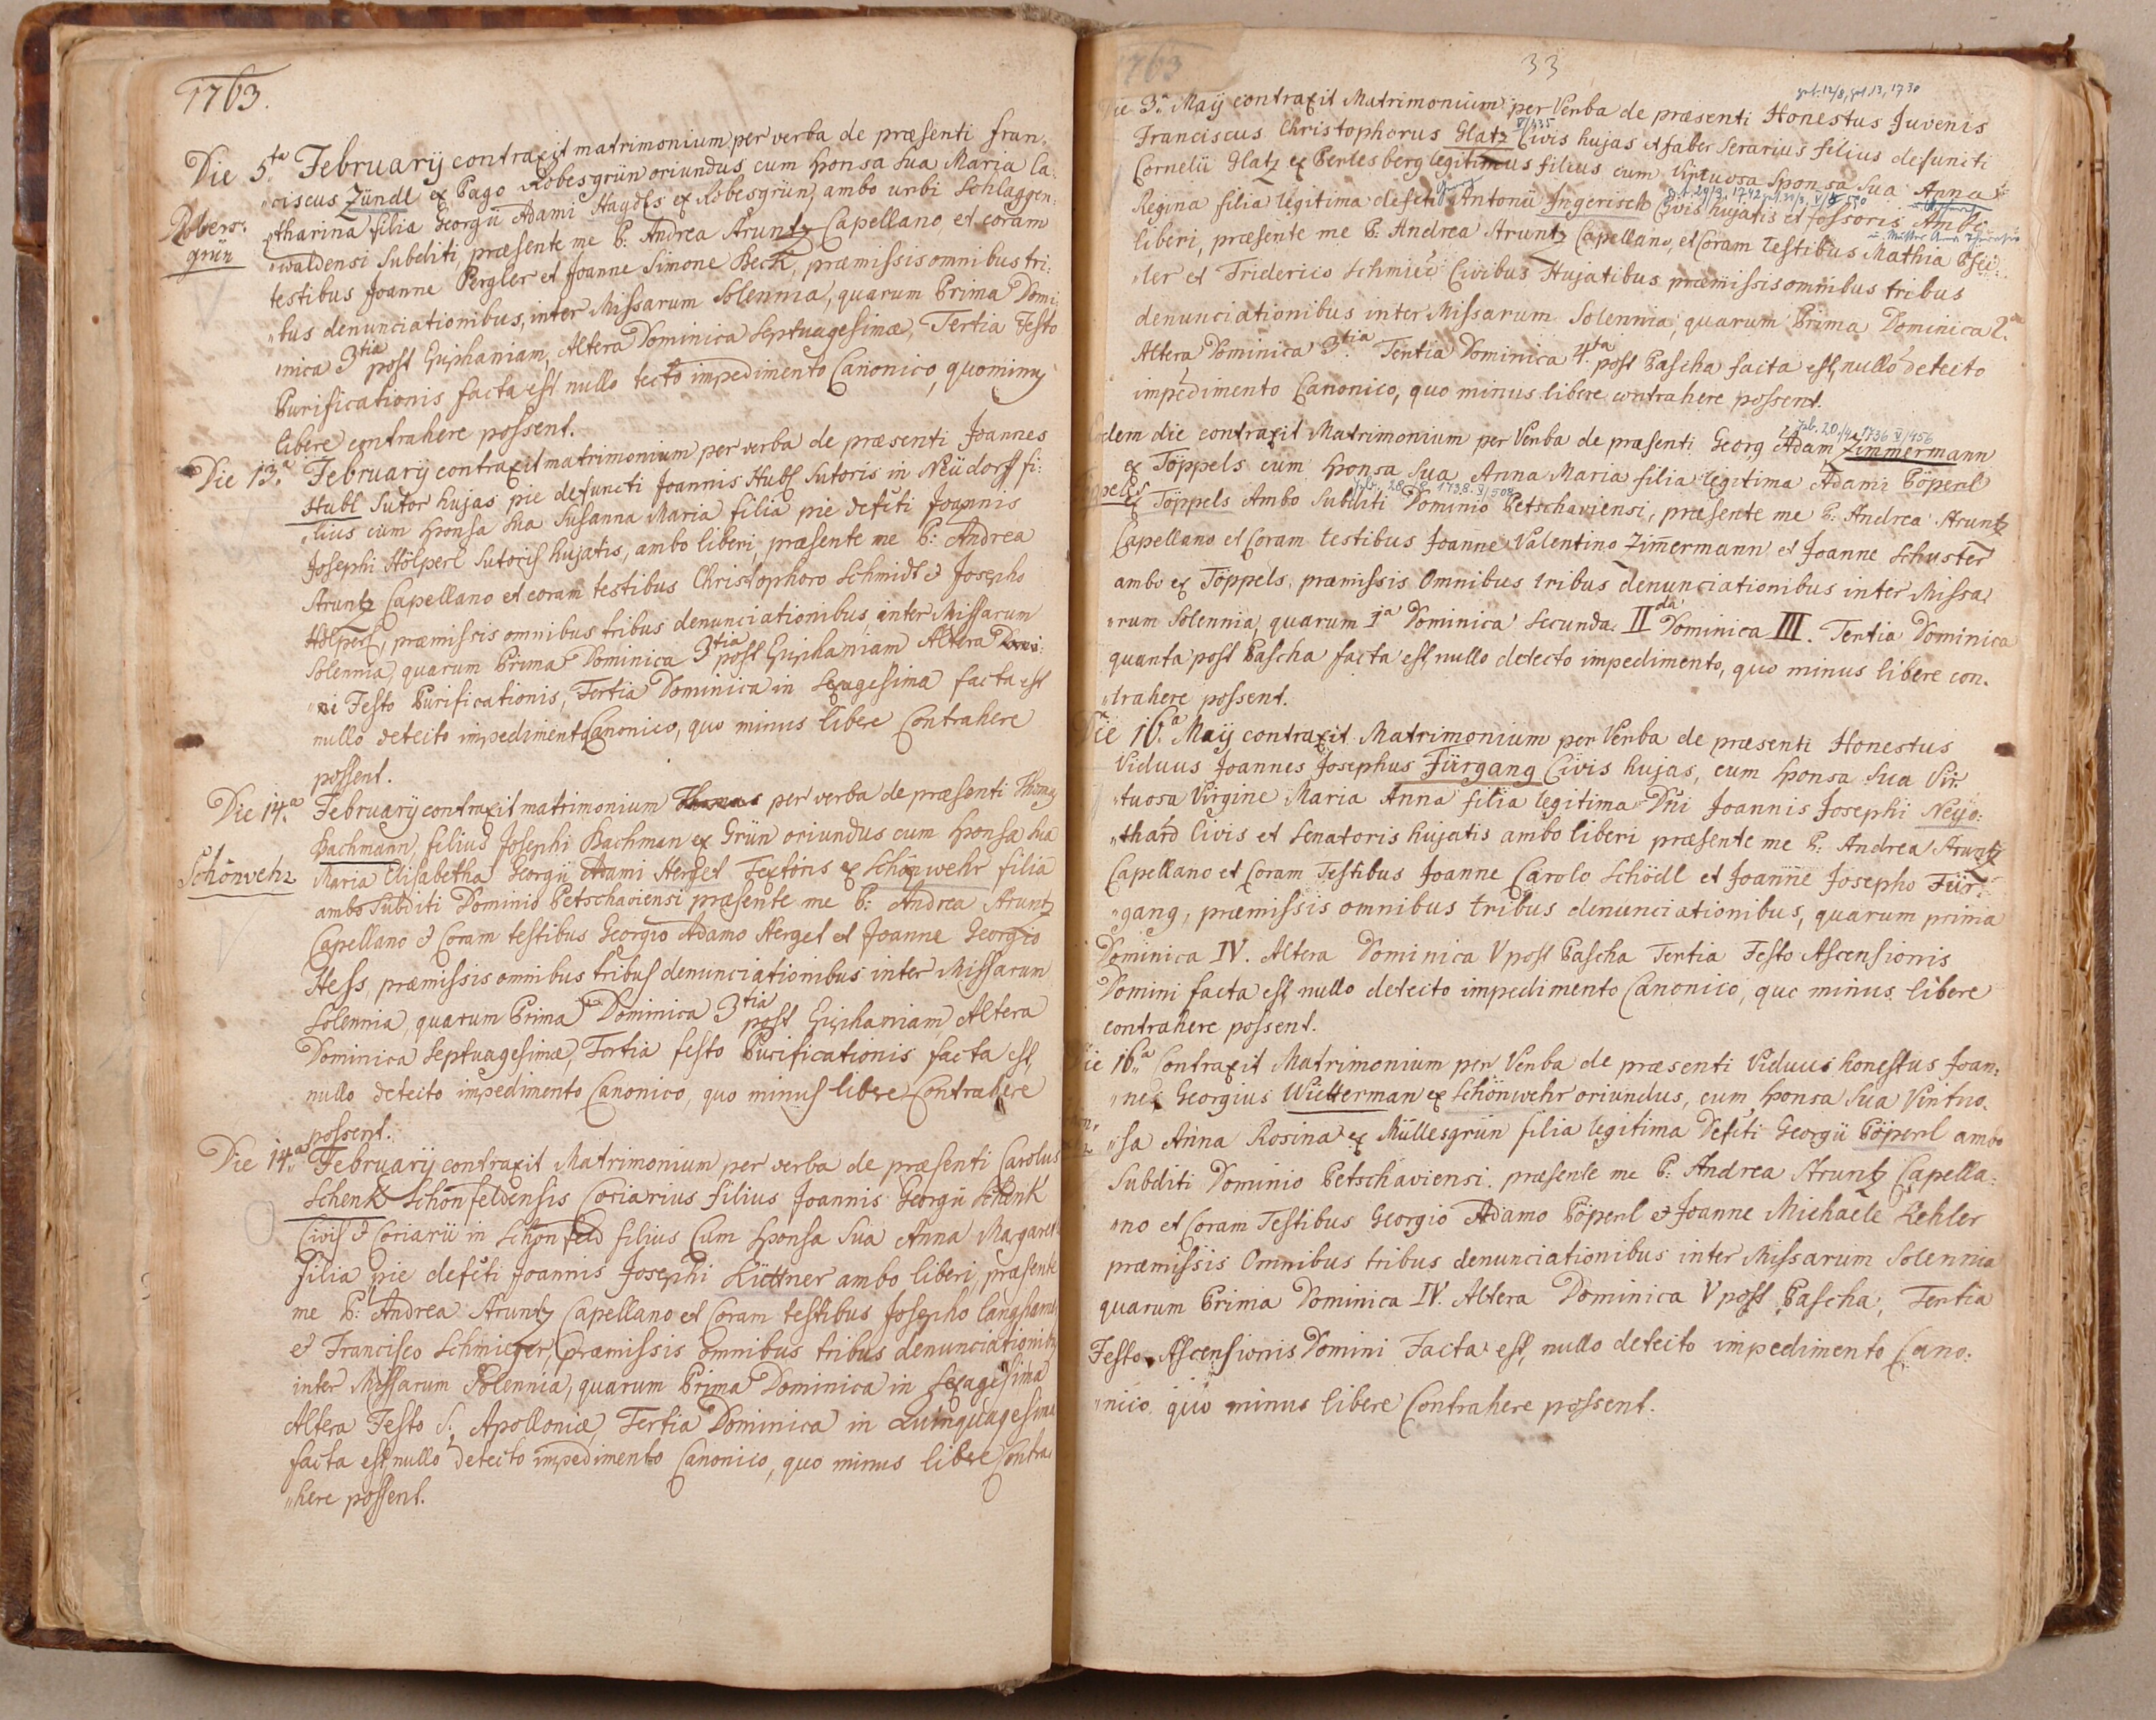 1763.
Die 5.ta Februarij contraxit matrimonium per verba de præsenti Fran-
ciscus Zündl ex Pago Robesgrün oriundus cum Sponsa sua Maria Ca-
Robers-
grün
tharina filia Georgii Adami Haydls ex Robesgrün, ambo urbi Schlaggen-
waldensi Subditi, præsente me P: Andrea Struntz Capellano, et coram
testibus Joanne Pergler et Joanne Simone Beck, præmissis omnibus tri-
bus denunciationibus, inter Missarum Solennia, quarum Prima Domi-
nica 3tia post Epiphaniam, Altera Dominica Septuagesimæ, Tertia Festo
Purificationis facta est nullo tecto impedimento Canonico, quominus
libere contrahere possent.
Die 13.a Februarij contraxit matrimonium per verba de præsenti Joannes
Hubl Sutor hujas pie defuncti Joannis Hubl Sutoris in Neüdorff fi-
lius cum Sponsa sua Susanna Maria filia pie defcti Joannis
Josephi Hölperl Sutoris hujatis, ambo liberi, præsente me P: Andrea
Struntz Capellano et coram testibus Christophoro Schmidt & Josepho
Hölperl, præmissis omnibus tribus denunciationibus inter Missarum
Solennia, quarum Prima Dominica 3tia post Epiphaniam Altera Domi-
ni Festo Purificationis, Tertia Dominica in Sexagesima facta est
nullo detecto impedimento Canonico, quo minus libere Contrahere
possent.
Die 14.a Februarij contraxit matrimonium Thomas per verba de præsenti Thomas
Bachmann, filius Josephi Bachman ex Grün oriundus cum Sponsa sua
Schönwehr
Maria Elisabetha Georgii Adami Hergel Textoris ex Schönwehr filia
ambo Subditi Dominio Petschaviensi præsente me P: Andrea Struntz
Capellano & Coram testibus Georgio Adamo Hergel et Joanne Georgio
Hess, præmissis omnibus tribus denunciationibus inter Missarum
Solennia, quarum Prima Dominica 3tia post Epiphaniam, Altera
Dominica Septuagesimæ, Tertia festo Purificationis facta est,
nullo detecto impedimento Canonico, quo minus libere Contrahere
possent.
Die 14.a Februarij contraxit Matrimonium per verba de præsenti Carolus
Schenk Schönfeldensis Coriarius filius Joannis Georgii Schenk
Civis & Coriarii in Schönfeld filius Cum Sponsa sua Anna Margaret
filia pie defcti Joannis Josephi Küttner ambo liberi, præsente
me P: Andrea Struntz Capellano et Coram testibus Josepho Langhans
& Francisco Schmieger, præmissis omnibus tribus denunciationibus
inter Missarum Solennia, quarum Prima Dominica in Sexagesima
Altera Festo S. Apolloniæ, Tertia Dominica in Quinquagesima
facta est nullo detecto impedimento Canonico, quo minus libere Contra-
here possent.
1763
33
geb. 12/8, get. 13, 1730
Die 3.a Maij contraxit Matrimonium per Verba de præsenti Honestus Juvenis
V/435
Franciscus Christophorus Glatz Civis hujas et faber Serarius filius defuncti
Cornelii Glatz ex Perlesberg legitimus filius cum Virtuosa Sponsa sua Anna
Georg
geb. 29/3. 1742 get. 30/3. V/550
Regina filia legitima defcti Antonii Ingerisch Civis hujatis et fossoris Ambo
liberi, præsente me P: Andrea Struntz Capellano, et Coram testibus Mathia
ler et Friderico Schmied Civibus Hujatibus præmissis omnibus tribus
denunciationibus inter Missarum Solennia, quarum Prima Dominica 2.a
Altera Dominica 3.tia Tertia Dominica 4.ta post Pascha facta est, nullo detecto
impedimento Canonico, quo minus libere contrahere possent.
geb. 20/4 1736 V/456
Eodem die contraxit Matrimonium per Verba de præsenti Georg Adam Zimmermann
ex Töppels cum Sponsa Sua Anna Maria filia legitima Adami Pöperl
geb. 28/8 1738. V/508
ex Töppels Ambo Subditi Dominio Petschaviensi, præsente me P: Andrea Struntz
Capellano et Coram testibus Joanne Valentino Zim̄ermann et Joanne Schuster
ambo ex Töppels, præmissis Omnibus tribus denunciationibus inter Missa-
rum Solennia, quarum 1a Dominica Secunda. IIda Dominica III. Tertia Dominica
quarta post Pascha facta est, nullo detecto impedimento, quo minus libere con-
trahere possent.
Die 16.a Maij contraxit Matrimonium per Verba de præsenti Honestus
Viduus Joannes Josephus Fürgang Civis hujas, cum Sponsa Sua Vir-
tuosa Virgine Maria Anna filia legitima Dni Joannis Josephi Neyd-
thard Civis et Senatoris hujatis ambo liberi præsente me P: Andrea Struntz
Capellano et Coram Testibus Joanne Carolo Schödl et Joanne Josepho Für-
gang, præmissis omnibus tribus denunciationibus, quarum prima
Dominica IV. Altera Dominica V post Pascha Tertia Festo Ascensionis
Domini facta est nullo detecto impedimento Canonico, quo minus libere
contrahere possent.
Die 16.a Contraxit Matrimonium per Verba de præsenti Viduus honestus Joan-
nes Georgius Wietterman ex Schönwehr oriundus, cum Sponsa Sua Virtuo-
sa Anna Rosina ex Müllesgrün filia legitima Defcti Georgii Pöperl ambo
Subditi Dominio Petschaviensi. præsente me P: Andrea Struntz Capella-
no et Coram Testibus Georgio Adamo Pöperl & Joanne Michaele Kehler
præmissis Omnibus tribus denunciationibus inter Missarum Solennia
quarum Prima Dominica IV. Altera Dominica V post Pascha, Tertia
Festo Ascensionis Domini Facta est, nullo detecto impedimento Cano-
nico quo minus libere Contrahere possent.